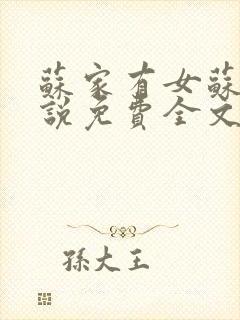 蘇家有女蘇
說免費全文
孫大王